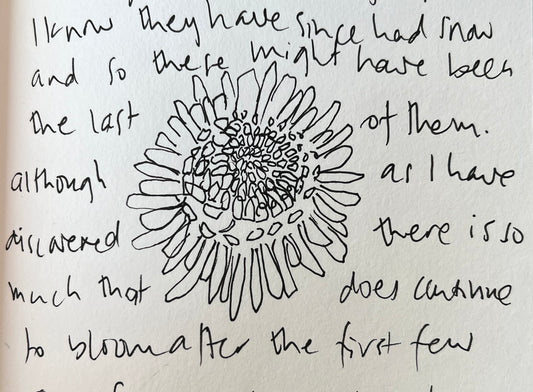 I know they have since had snow
and so these might have been
the last of them.
although as I have
discovered there is so
much that does continue
to bloom after the first few